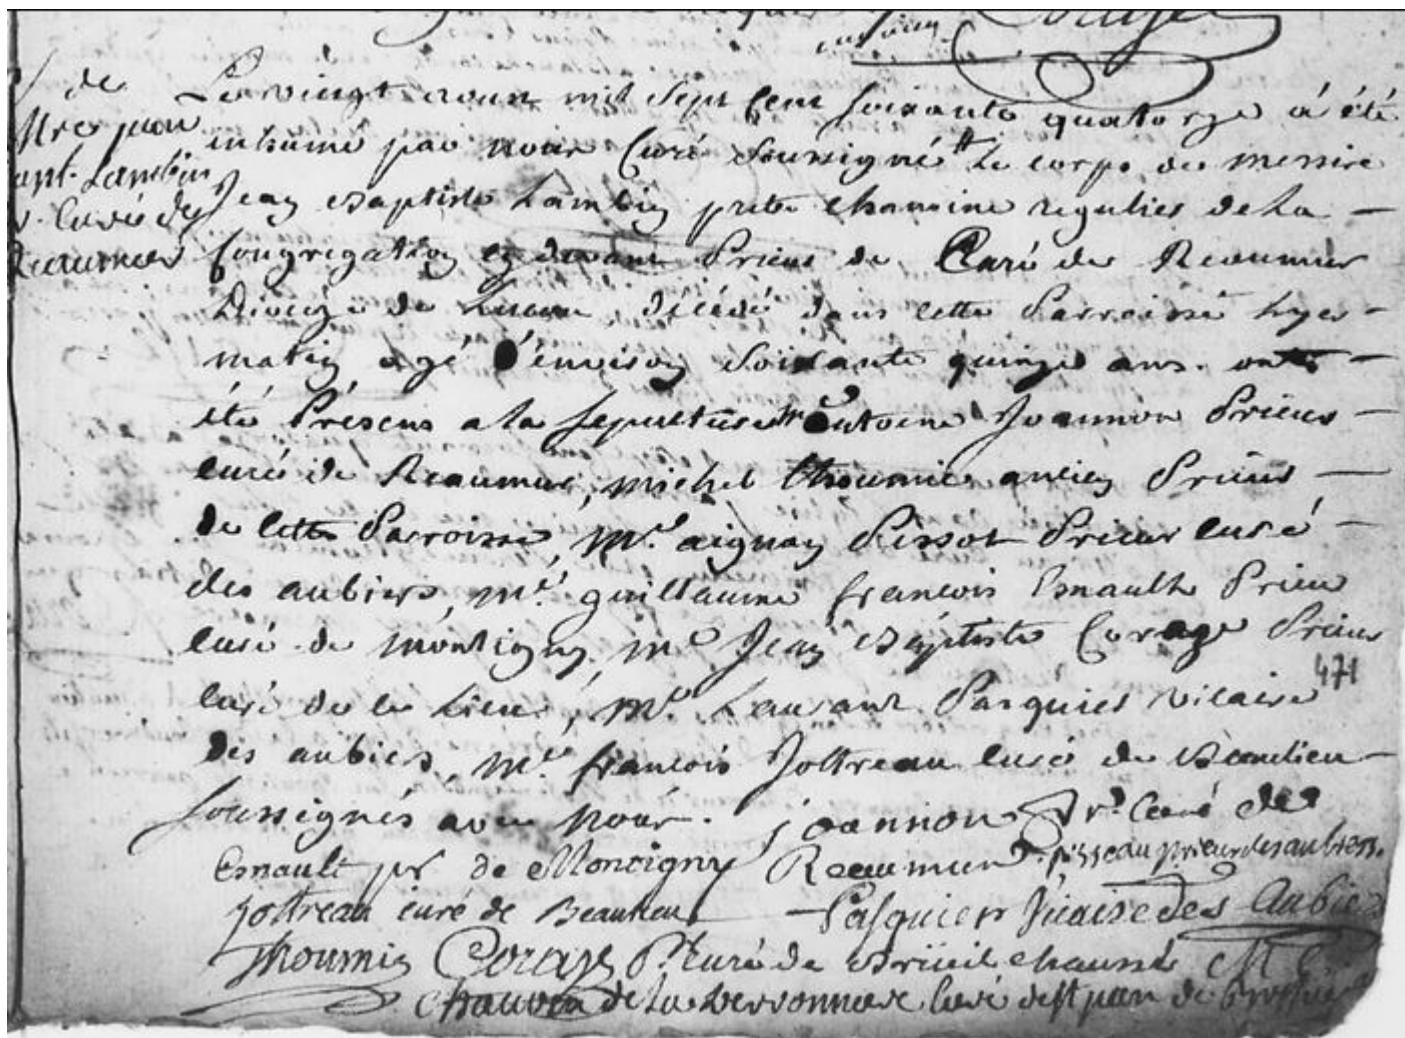 de
Mre jean
bapt. Lambin
p. Curé de
Reaumur
Le vingt aoust mil sept cent soixante quatorze à été
inhumé par nous Curé soussigné le corps de messire
Jean Baptiste Lambin pretre chanoine regulier de la
Congregation cy devant Prieur de Curé de Reaumur
Dioceze de Luçon décédé dans cette Parroisse hyer
matin agé d'environ soixante quinze ans. ont
été Présens a la sepulture mre Antoine Joannon Prieur
curé de Reaumur, michel Thoumin ancien Prieur
de cette Parroisse, Mre aignan Pissot Prieur curé
des aubiers, mre guillaume francois Esnault Prieur
curé de montigny, me Jean Baptiste Corage Prieur
curé de la , Mre Laurant Pasquier vicaire
471
des aubiers, Mre francois Joltreau curé de Beaulieu
soussignés avec nous. joannon Pr. Curé de
Esnault pr. de Montigny Reaumur. prieur des aubiers.
joltreau curé de Beaulieu Pasquier Vicaire des Aubiers
Thoumin Corage Pr. Curé de Brüeil chaussé
de la verronniere Curé de St jean de